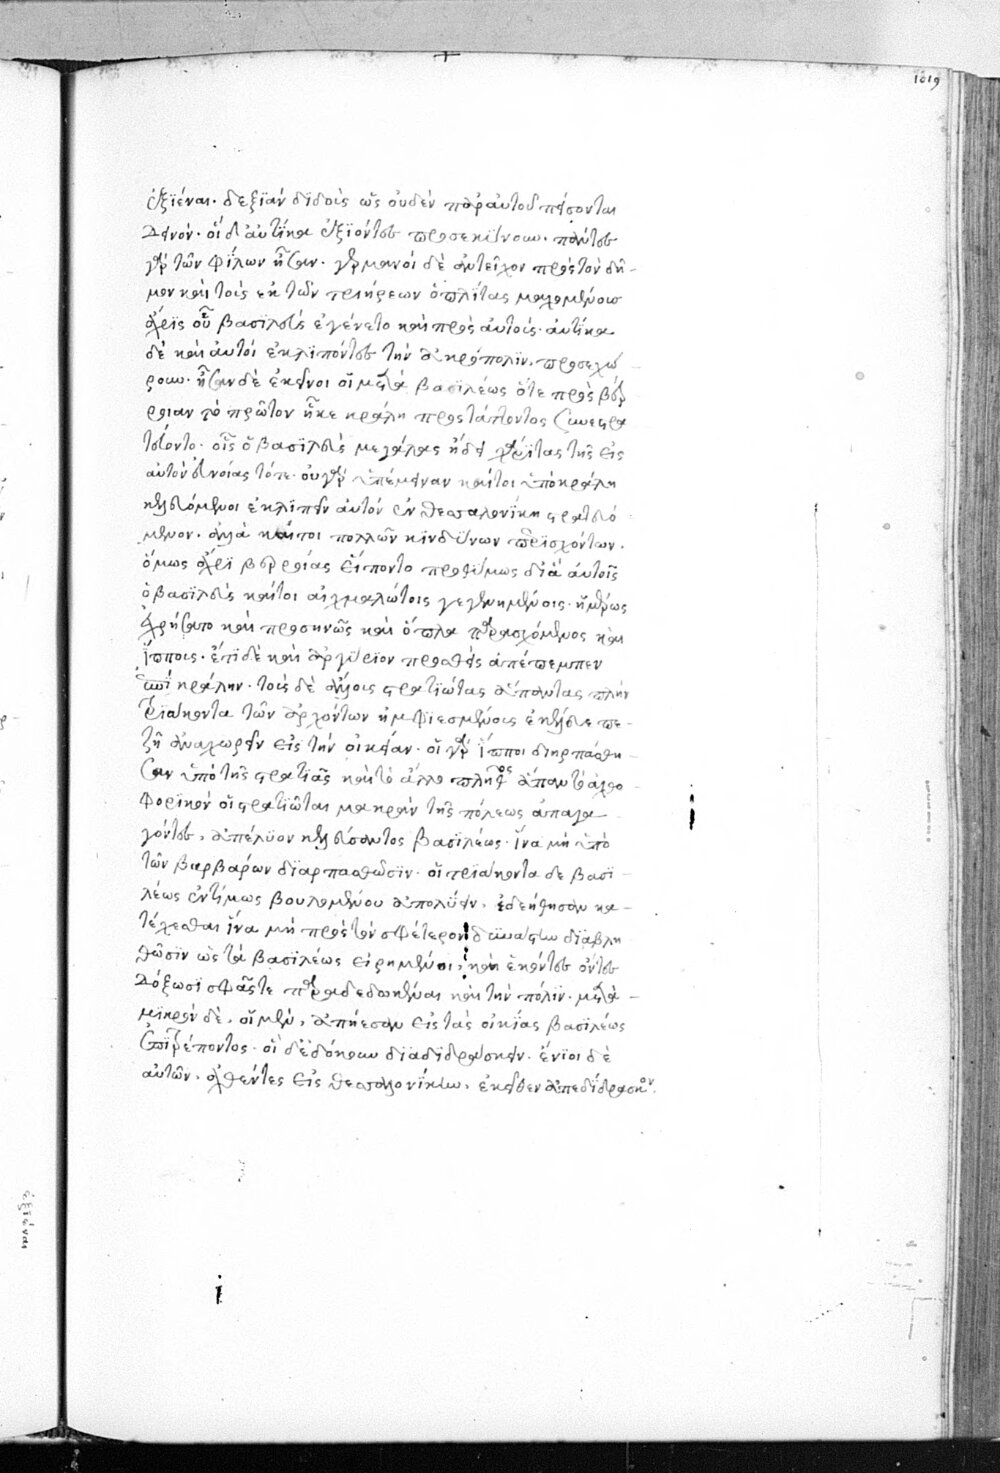 1019
ἐξϊέναι. δεξϊὰν διδοὺς ὡς οὐδὲν παρ' αὐτοῦ πείσονται
δεινόν. οἱ δ' αὐτίκα ἐξϊόντες προσεκύνουν. πάντες
γὰρ τῶν φίλων ἦσαν. γερμανοὶ δὲ ἀντεῖχον πρὸς τὸν δῆ-
μον καὶ τοὺς ἐκ τῶν τριήρεων ὁπλίτας μαχομένους
ἄχρϊς οὗ βασϊλεὺς ἐγένετο καὶ πρὸς αὐτούς. αὐτίκα
δὲ καὶ αὐτοὶ ἐκλϊπόντες τὴν ἀκρόπολϊν, προσεχώ
ρουν. ἦσαν δὲ ἐκεῖνοι οἱ μετὰ βασϊλέως ὅτε πρὸς βέρ
ροιαν τὸ πρῶτον ἧκε κράλη προστάττοντος συνεστρα
τεύοντο. οἷς ὁ βασϊλεὺς μεγάλας ᾔδει χάρϊτας τῆς εἰς
αὐτὸν εὐνοίας τότε. οὐ γὰρ ὑπέμειναν καίτοι ὑπὸ κράλη
κελευόμενοι ἐκλϊπεῖν αὐτὸν ἐν θεσσαλονίκη στρατευό
μενον. ἀλλὰ καίτοι πολλῶν κινδύνων περϊσχόντων.
ὅμως ἄχρϊ βερροίας εἵποντο προθύμως διὰ αὐτοῖς
ὁ βασϊλεὺς καίτοι αἰχμαλώτοις γεγενημένοις. ἡμέρως
ἐχρήσατο καὶ προσηνῶς καὶ ὅπλα παρασχόμενος καὶ
ἵππους. ἔτϊ δὲ καὶ ἀργύρϊον προσθεὶς ἀπέπεμπεν
ἐπὶ κράλην. τοὺς δὲ ἄλλους στρατϊώτας ἅπαντας πλὴν
τρϊάκοντα τῶν ἀρχόντων ἠμφϊεσμένους ἐκέλευε πε-
ζῆ ἀναχωρεῖν εἰς τὴν οἰκείαν. οἱ γὰρ ἵπποι διηρπάσθη
σαν ὑπὸ τῆς στρατϊᾶς καὶ τὸ ἄλλο πλῆθος ἅπαν τὸ ἀχθο
φορϊκὸν οἱ στρατϊῶται μακρὰν τῆς πόλεως ἀπαγα
γόντες, ἀπέλυον κελεύσαντος βασϊλέως. ἵνα μὴ ὑπὸ
τῶν βαρβάρων διαρπασθῶσϊν. οἱ τρϊάκοντα δὲ βασϊ-
λέως ἐντίμως βουλομένου ἀπολύειν, ἐδεήθησαν κα-
τέχεσθαι ἵνα μὴ πρὸς τὸν σφέτερον δυνάστην διαβλη
θῶσϊν ὡς τὰ βασϊλέως εἰρημένοι, καὶ ἑκόντες ὄντες
δόξωσϊ σφᾶς τε παραδεδωκέναι καὶ τὴν πόλϊν. μετὰ
μϊκρὸν δὲ, οἱ μὲν, ἀπήεσαν εἰς τὰς οἰκίας βασϊλέως
ἐπϊτρέποντος. οἱ δ' ἐδόκουν διαδϊδράσκειν. ἔνϊοι δὲ
αὐτῶν, ἀχθέντες εἰς θεσσαλονίκην, ἐκεῖθεν ἀπεδίδρασκον.
ἐξϊέναι